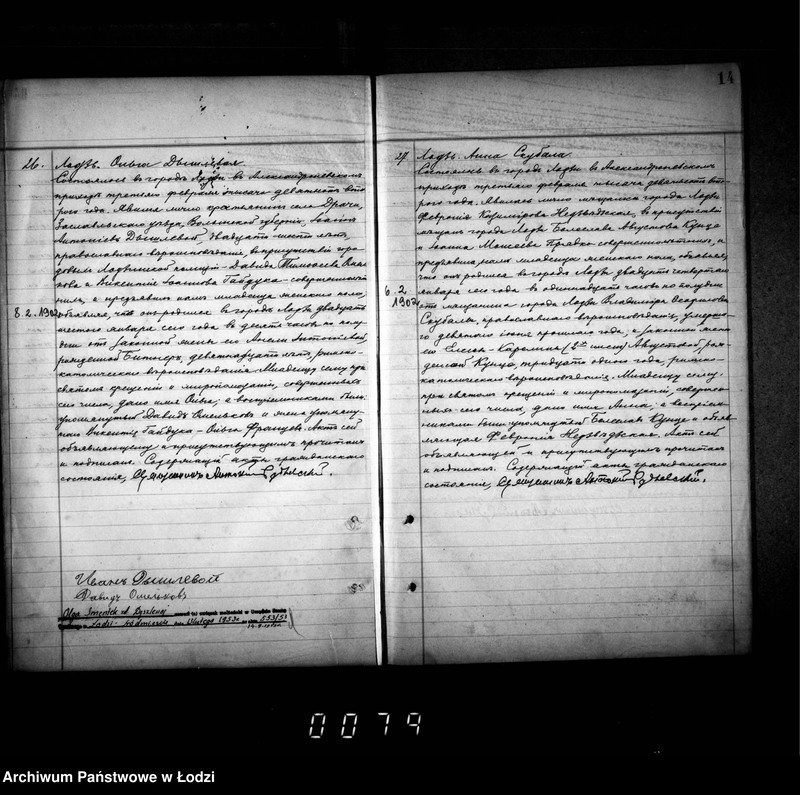 14
26. Лодзь. Ольга Дышлевая
Состоялось въ городѣ Лодзи въ Александровскомъ
приходѣ третьяго февраля тысяча девятьсотъ вто-
рого года. Явился лично крестьянинъ села Драчи,
Заславльскаго уѣзда, Волынской губерніи,
Антоніевъ Дышлевой, двадцати шести лѣтъ,
православнаго вѣроисповѣданія, въ присутствіи горо-
довыхъ Лодзинской полиціи - Давида Тимофеева Омель-
кова и Викентія Гайдука - совершеннолѣт-
нихъ, и предъявилъ намъ младенца женскаго пола,
8.2.1902 объявляя, что онъ родился въ городѣ Лодзи двадцать
шестого января сего года въ десять часовъ по полу-
дни отъ законной жены его Антоніевой,
рожденной девятнадцати лѣтъ, римско-
католическаго вѣроисповѣданія. Младенцу сему при
святомъ крещеніи и миропомазаніи, совершенныхъ
сего числа, дано имя Ольга, а воспріемниками были:
упомянутый Давидъ Омельковъ и жена упомяну-
таго Викентія Гайдука - Ольга Францева. Актъ сей
объявляющему и присутствующимъ прочитанъ
и подписанъ. Содержащій акты гражданскаго
состоянія, Священникъ Антоній Рудлевскій.
Иванъ Дышлевой
Давидъ Омельковъ
Olga
Łodzi - lutego 1953 553/53
27. Лодзь. Анна Скубала
Состоялось въ городѣ Лодзи въ Александровскомъ
приходѣ третьяго февраля тысяча девятьсотъ вто-
рого года. Явилась лично мѣщанка города Лодзи
Февронія Казимірова Недзвядзская, въ присутствіи
мѣщанъ города Лодзи Болеслава Августова Кунце
и Іоанна Моисеева Прядко - совершеннолѣтнихъ, и
предъявила намъ младенца женскаго пола, объявляя,
что онъ родился въ городѣ Лодзи двадцать четвертаго
6.2.1902 января сего года въ одиннадцать часовъ по полудни
отъ мѣщанина города Лодзи Владиміра
Скубалы, православнаго вѣроисповѣданія, умерша-
го девятаго іюня прошлаго года, и законной жены
его Елены - Каролины (2хъ именъ) Августовой, рож-
денной Кунце, тридцати одного года, римско-
католическаго вѣроисповѣданія. Младенцу сему
при святомъ крещеніи и миропомазаніи, совершен-
ныхъ сего числа, дано имя Анна, а воспріем-
никами были: упомянутый Болеславъ Кунце и объяв-
ляющая Февронія Недзвядзская. Актъ сей
объявляющей и присутствующимъ прочитанъ
и подписанъ. Содержащій акты гражданскаго
состоянія, Священникъ Антоній Рудлевскій.
0079
Archiwum Państwowe w Łodzi